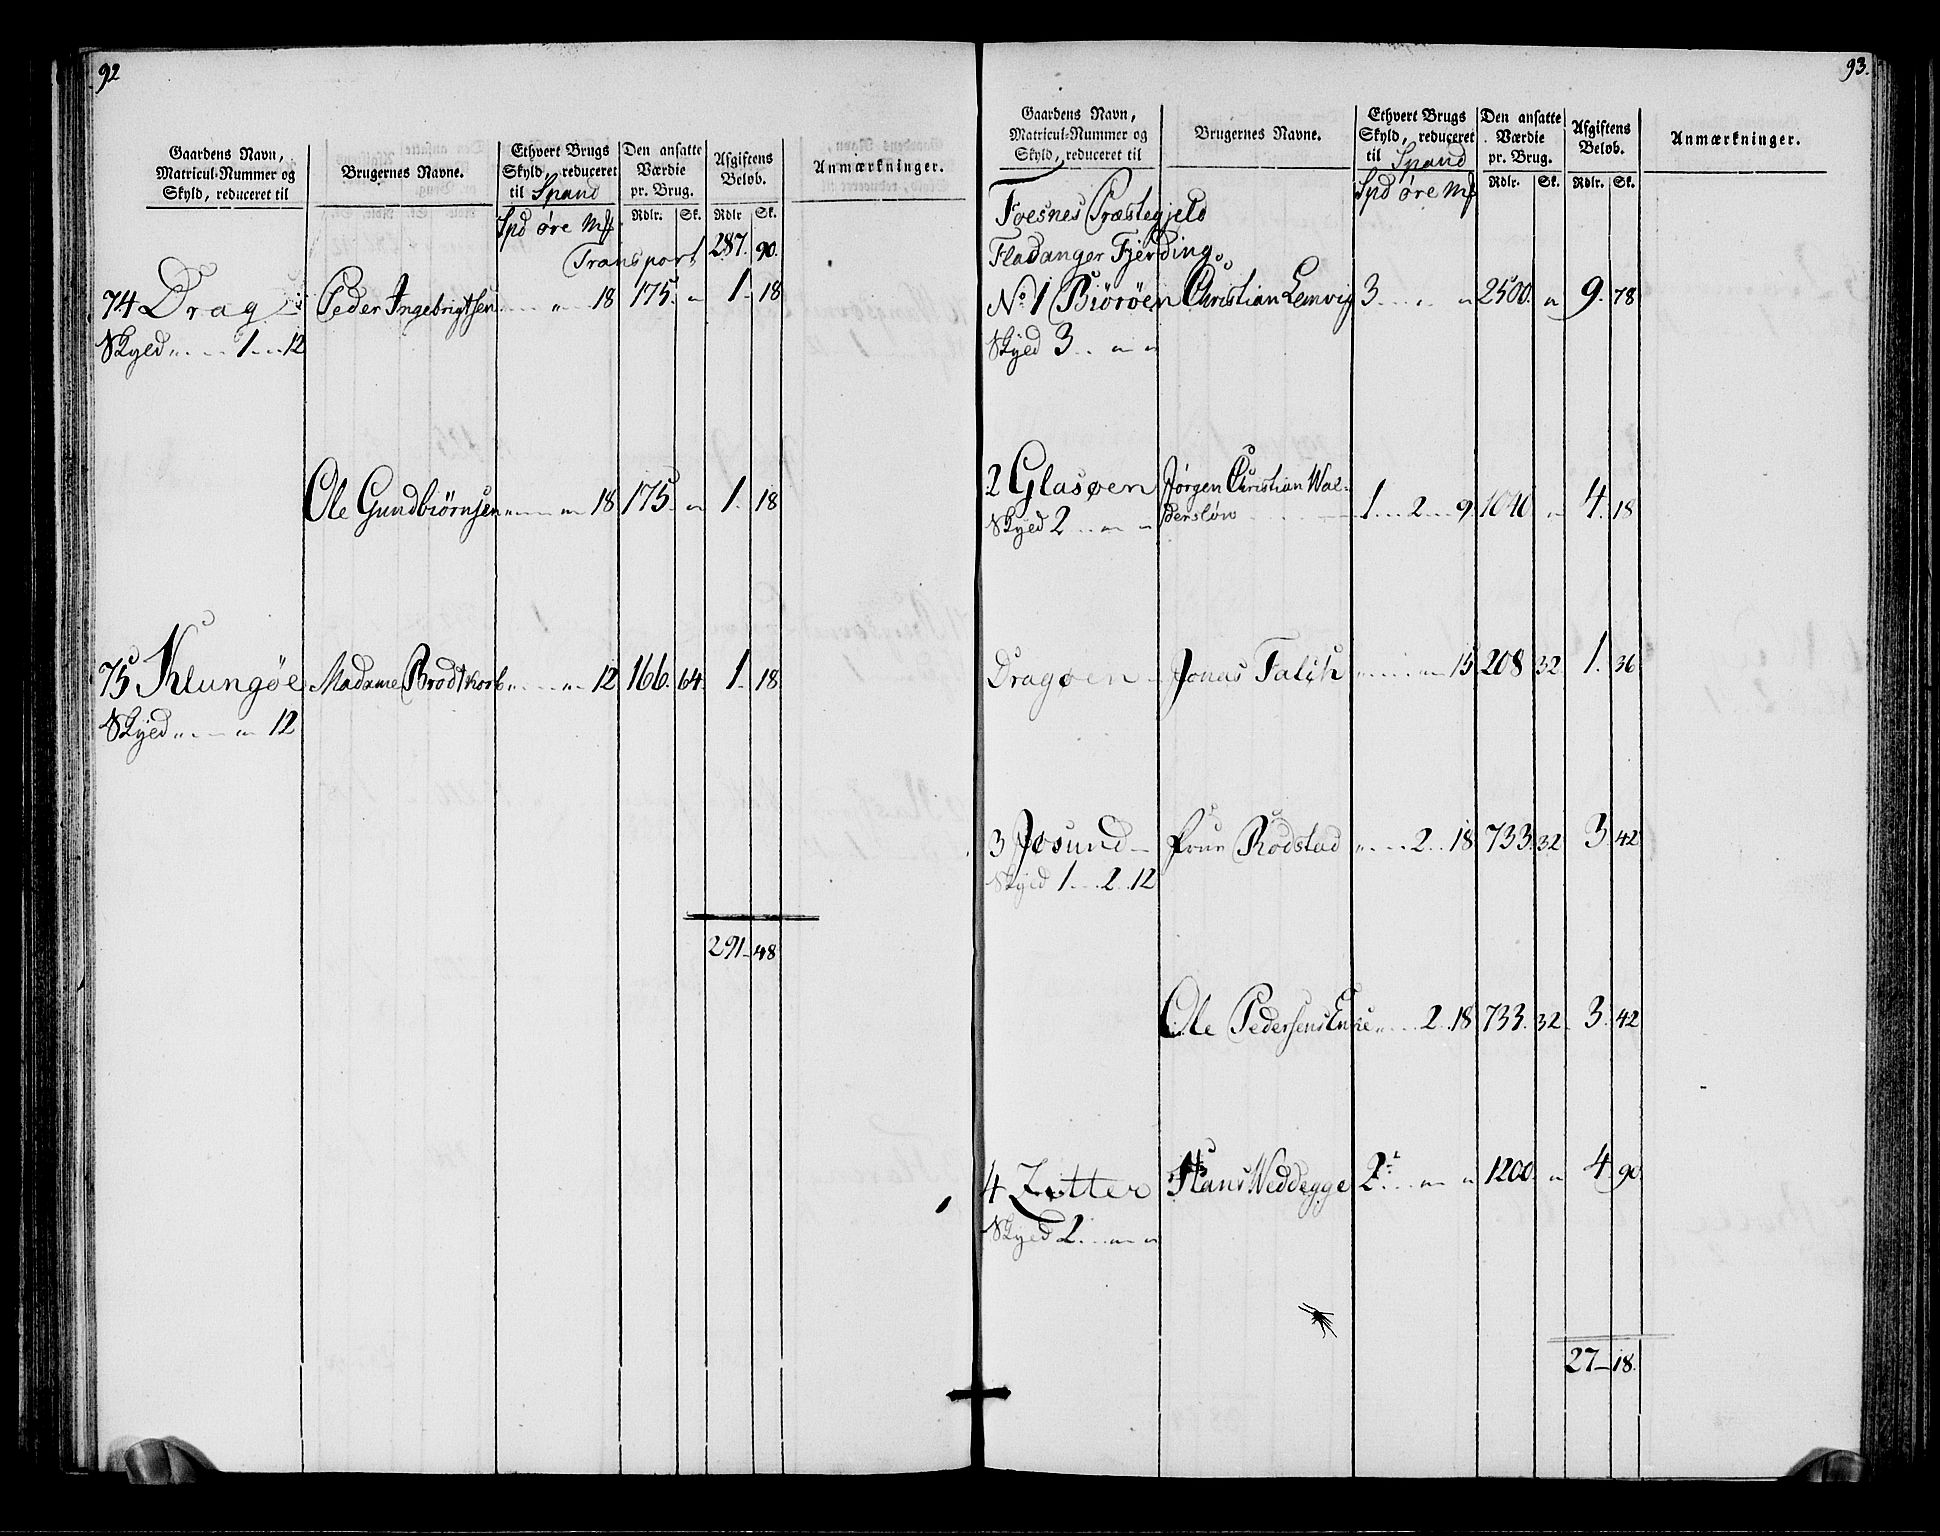 92
Gaardens Navn, Matricul-Nummer og Skyld, reduceret til
Brugernes Navne.
Ethvert Brugs Skyld, reduceret til Spand
Den ansatte Værdie pr. Brug.
Afgiftens Beløb.
Anmærkninger.
Spd øre Mk Rdlr. Sk. Rdlr Sk.
Transport 287. 90.
74 Drag Peder Ingebrigtsen " 18 175. " 1. 18
Skyld " 1 12
Ole Gundbiørnsen " " 18 175. " 1. 18
75 Klungøe Madame Brodtkorb " " 12 166. 64. 1. 18
Skyld " " 12
291 48
93.
Gaardens Navn, Matricul-Nummer og Skyld, reduceret til
Brugernes Navne.
Ethvert Brugs Skyld, reduceret til Spand
Den ansatte Værdie pr. Brug.
Afgiftens Beløb.
Anmærkninger.
Spd øre Mk Rdlr. Sk. Rdlr. Sk.
Foesnes Præstegjeld
Fladanger Fjerding
No 1 Biörøen Christian Lemvig 3 " " 2500. " 9. 78
Skyld 3 " "
2 Glasøen Jørgen Christian Wal-
Skyld 2 " " dersløw 1 2 9 1040 " 4. 18
Dragøen Jonas Falch " " 15 208 32 1. 36
3 Josund Frue Rodstad " 2 18 733. 32 3. 42
Skyld 1 2 12
Ole Pedersens Enke " 2 18 733. 32 3. 42
4 Zetter Hans Weddegge 2 " " 1200. " 4. 90.
Skyld 2 " "
27 18.